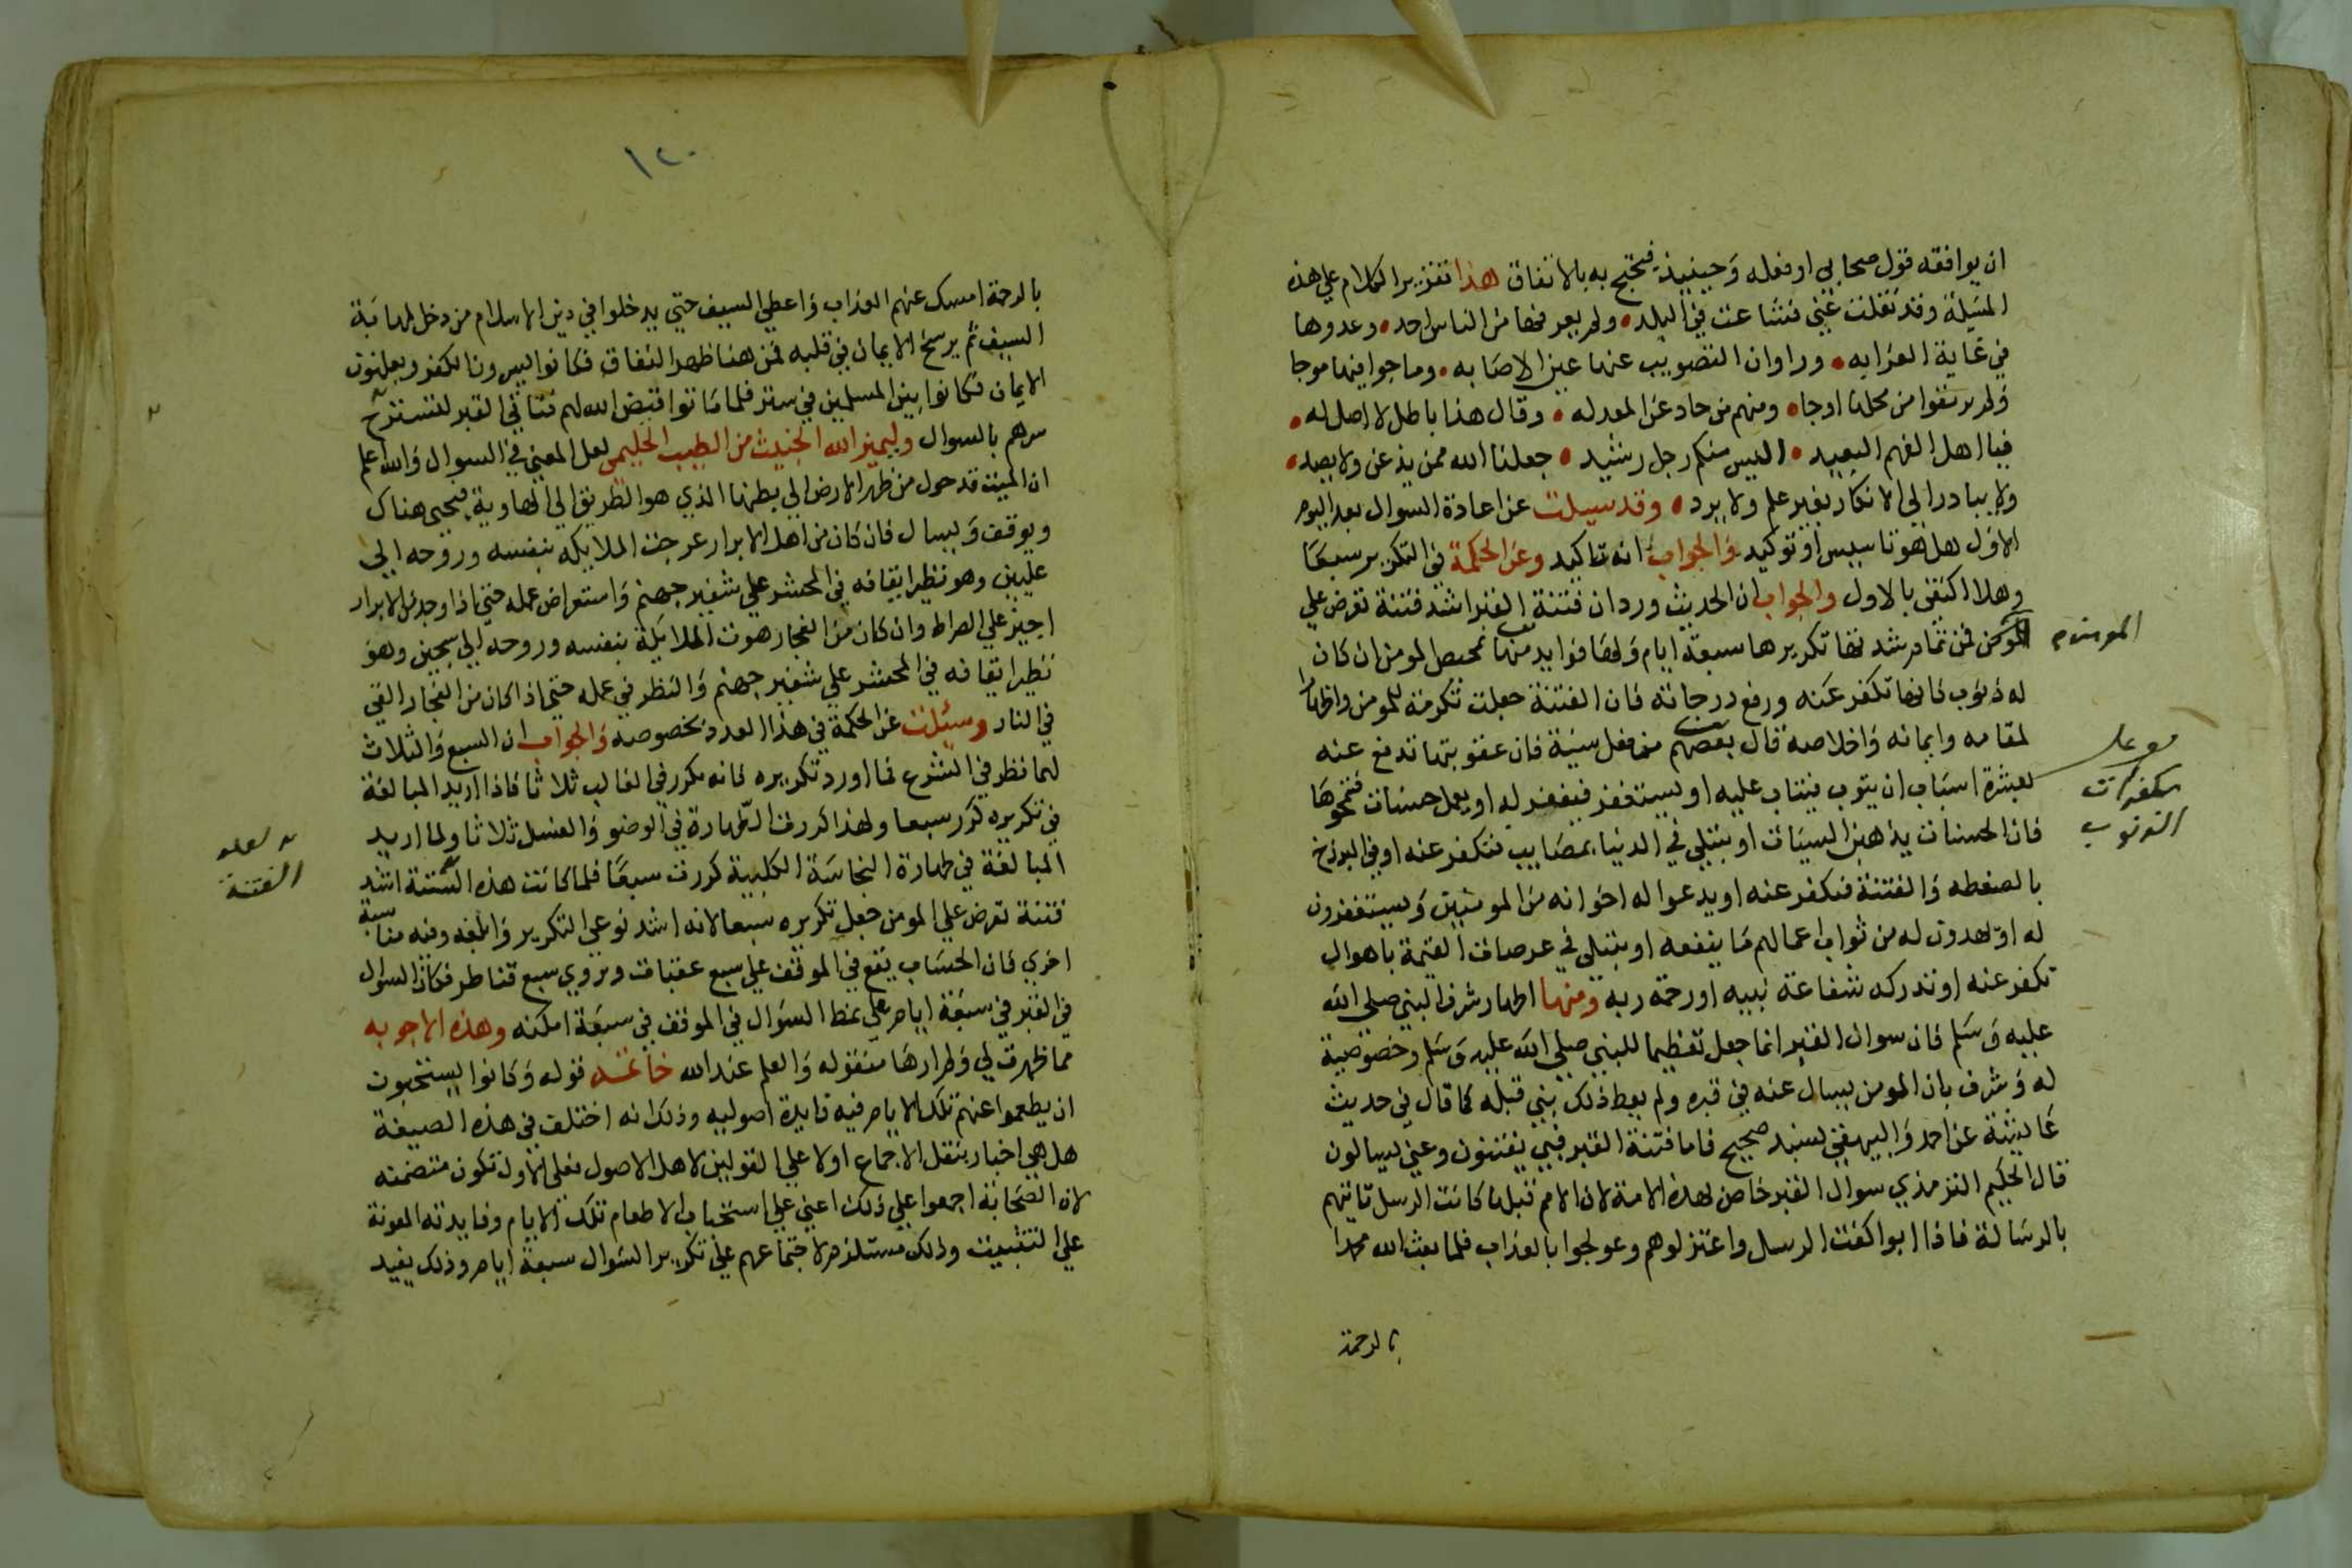 ان يوافقه قول صحابي او فعله وحينيذ فيحتج به بالاتفاق هذا تقرير الكلام علي هذه
المسيلة وقد نقلت عني فشاعت في البلد ولم يعرفها من الناس احد وعدوها
في غاية الغرابه وراوا ان التصويب عنها عين الاصابه وماجوا فيها موجا
ولم يرتقوا من محلها اوجا ومنهم من حاد عن المعدله وقال هذا باطل لا اصل له
فيا اهل الفهم البعيد اليس منكم رجل رشيد جعلنا الله ممن يذعن ولا يصد
ولا يبادر الي الانكار بغير علم ولا يرد وقد سيلت عن اعادة السوال بعد اليوم
الاول هل هو تاسيس او توكيد والجواب انه تاكيد وعن الحكمة في التكرير سبعا
وهلا اكتفي بالاول والجواب ان الحديث ورد ان فتنة القبر اشد فتنة تعرض علي
المومن فمن تمام شدتها تكريرها سبعة ايام ولها فوايد منها تمحيص المومن ان كان
له ذنوب فانها تكفر عنه ورفع درجاته فان الفتنة جعلت تكرمة للمومن واظهارا
لمقامه وايمانه واخلاصه قال بعضهم من فعل سيئة فان عقوبتها تدفع عنه
بعشرة اسباب ان يتوب فيتاب عليه او يستغفر فيغفر له او يعمل حسنات فتمحوها
فان الحسنات يذهبن السيئات او يبتلي في الدنيا بمصايب فتكفر عنه او في البرزخ
بالضغطه والفتنة فتكفر عنه او يدعوا له اخوانه من المومنين ويستغفرون
له او يهدون له من ثواب اعمالهم ما ينفعه او يبتلي في عرصات القيمة باهوال
تكفر عنه او تدركه شفاعة نبيه او رحمة ربه ومنها اظهار شرف النبي صلي الله
عليه وسلم فان سوال القبر انما جعل تعظيما للنبي صلي الله عليه وسلم وخصوصية
له وشرف بان المومن يسال عنه في قبره ولم يعط ذلك نبي قبله كما قال في حديث
عايشة عن احمد والبيهقي بسند صحيح فاما فتنة القبر فبي يفتنون وعني يسالون
قال الحكيم الترمذي سوال القبر خاص لهذه الامة لان الامم قبلها كانت الرسل تاتيهم
بالرسالة فاذا ابوا كفت الرسل واعتزلوهم وعولجوا بالعذاب فلما بعث الله محمدا
بالرحمة
المومن م
مكفرات
الذنوب
١٢٠
بالرحمة امسك عنهم العذاب واعطي السيف حتي يدخلوا في دين الاسلام من دخل لمهابة
السيف ثم يرسخ الايمان في قلبه فمن هنا ظهر النفاق فكانوا يسرون الكفر ويعلنون
الايمان فكانوا بين المسلمين في ستر فلما ماتوا قيض الله لهم فتاني القبر لتستخرج
سرهم بالسوال وليميز الله الخبيث من الطيب الحليمي لعل المعني في السوال والله اعلم
ان الميت قد حول من ظهر الارض الي بطنها الذي هو الطريق الي الهاوية فيحيي هناك
ويوقف ويسال فان كان من اهل الابرار عرجت الملايكه بنفسه وروحه الي
عليين وهو نظير ايقافه في المحشر علي شفير جهنم واستعراض عمله حتي اذا وجد من الابرار
اجيز علي الصراط وان كان من الفجار هوت الملايكة بنفسه وروحه الي سجين وهو
نظير ايقافه في المحشر علي شفير جهنم والنظر في عمله حتي اذا كان من الفجار القي
في النار وسئلت عن الحكمة في هذا العدد بخصوصه والجواب ان السبع والثلاث
لهما نظر في الشرع فما اورد تكريره فانه يكرر في الغالب ثلاثا فاذا اريد المبالغة
في تكريره كرر سبعا ولهذا كررت الطهارة في الوضو والغسل ثلاثا ولما اريد
المبالغة في طهارة النجاسة الكلبية كررت سبعا فلما كانت هذه الستنة اشد
فتنة تعرض علي المومن جعل تكريره سبعا لانه اشد نوعي التكرير وابلغه وفيه مناسبة
اخري فان الحساب يقع في الموقف علي سبع عقبات ويروي سبع قناطر فكان السوال
في القبر في سبعة ايام علي نمط السوال في الموقف في سبعة امكنه وهذه الاجوبه
مما ظهرت لي ولم ارها منقوله والعلم عند الله خاتمه قوله وكانوا يستحبون
ان يطعموا عنهم تلك الايام فيه فايدة اصوليه وذلك انه اختلف في هذه الصيغة
هل هي اخبار بنقل الاجماع او لا علي القولين لاهل الاصول فعلي الاول تكون متضمنه
لان الصحابة اجمعوا علي ذلك اعني علي استحباب الاطعام تلك الايام وفايدته المعونة
علي التثبيت وذلك مستلزم لاجتماعهم علي تكرير السوال سبعة ايام وذلك يفيد
لعله
الفتنة